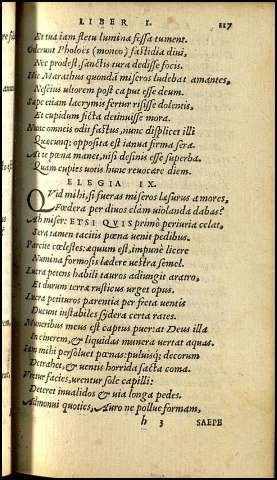 LIBER I. 117
Et tua iam fletu lumina fessa tument.
Oderunt Pholoë (moneo) fastidia diui,
Nec prodest sanctis tura dedisse focis.
Hic Marathus quondā miseros ludebat amantes,
Nescius ultorem post caput esse deum.
Sæpe etiam lacrymis fertur risisse dolentis,
Et cupidum ficta detinuisse mora.
Nunc omneis odit fastus, nunc displicet illi
Quæcunq; opposita est ianua firma sera.
At te pœna manet, nisi desinis esse superba.
Quam cupies uotis hunc reuocare diem.
ELEGIA IX.
Quid mihi, si fueras miseros læsurus amores,
Fœdera per diuos clàm uiolanda dabas?
Ah miser: ETSI QVIS primò periuria celat,
Sera tamen tacitis pœna uenit pedibus.
Parcite cælestes: æquum est, impunè licere
Numina formosis lædere uestra semel.
Lucra petens habili tauros adiungit aratro,
Et durum terræ rusticus urget opus.
Lucra petituros parentia per freta uentis
Ducunt instabiles sydera certa rates.
Muneribus meus est captus puer: at Deus illa
In cinerem, & liquidas munera uertat aquas.
Iam mihi persoluet pœnas: puluisq; decorum
Detrahet, & uentis horrida facta coma.
Vretur facies, urentur sole capilli:
Deteret inualidos & uia longa pedes.
Admonui quoties, Auro ne pollue formam,
h 3 SAEPE